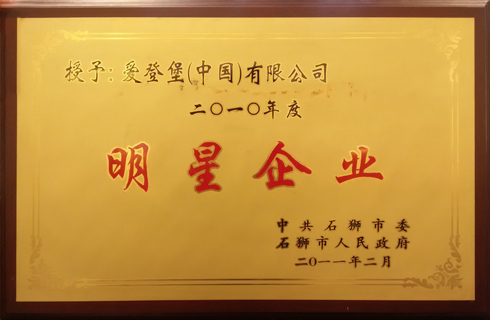 授予：爱登堡(中国)有限公司
二〇一〇年度
明星企业
中共石狮市委
石狮市人民政府
二〇一一年二月